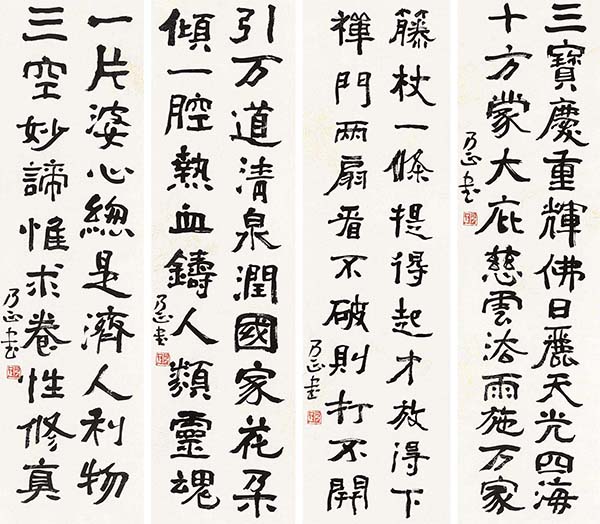 三寶慶重輝佛日麗天光四海
十方蒙大庇慈雲法雨施万家
乃正書
籐杖一條提得起才放得下
禪門兩扇看不破則打不開
乃正書
引万道清泉潤國家花朵
傾一腔熱血鑄人類靈魂
乃正書
一片婆心總是濟人利物
三空妙諦惟求養性修真
乃正書